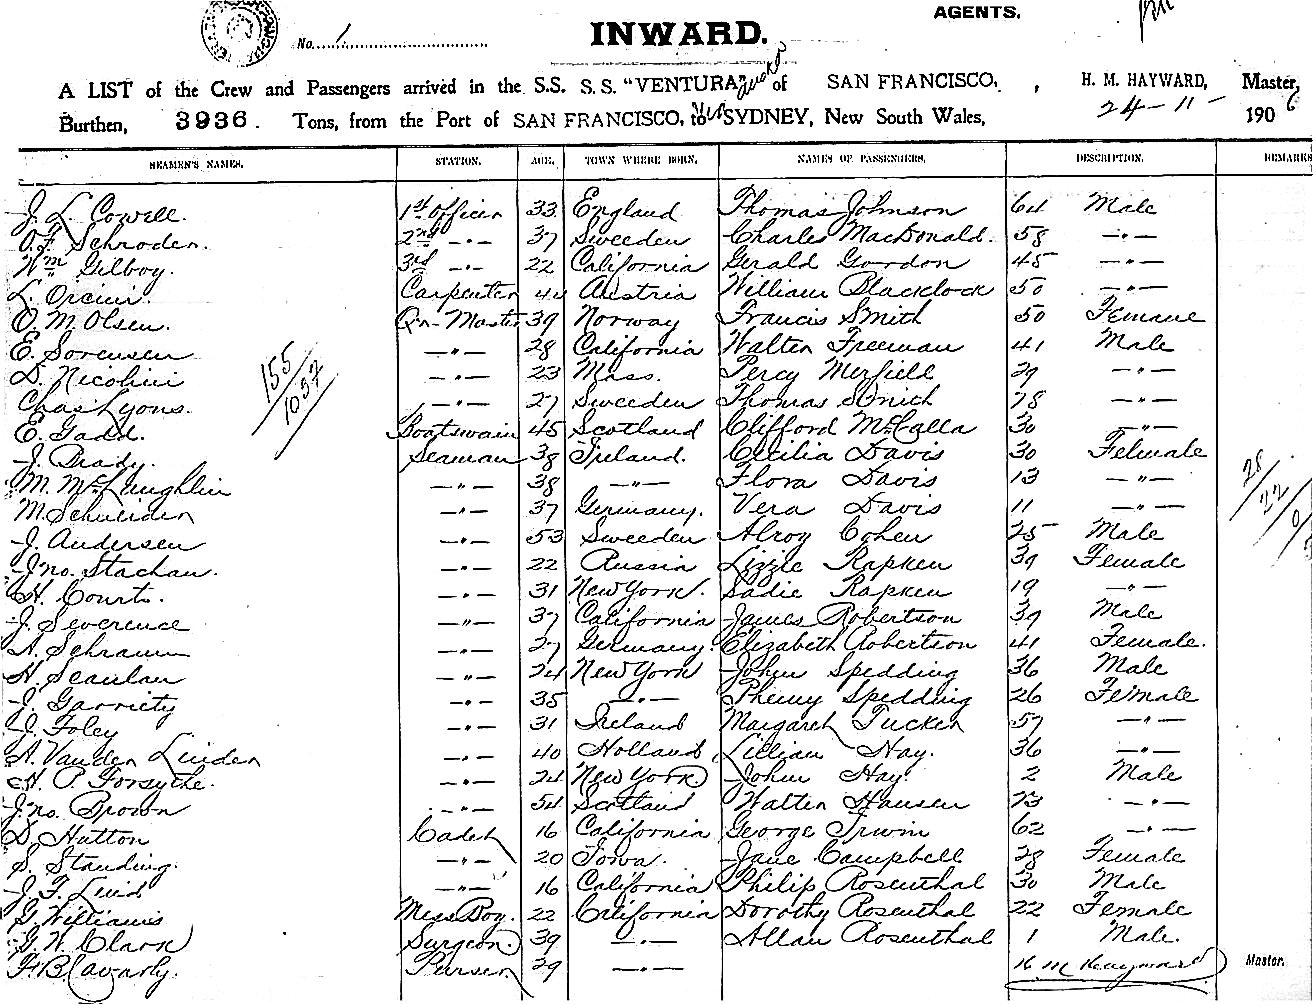 AGENTS.
No. 1
INWARD.
A LIST of the Crew and Passengers arrived in the S.S. S.S. "VENTURA" of SAN FRANCISCO, , H. M. HAYWARD, Master,
Burthen, 3936. Tons, from the Port of SAN FRANCISCO, to SYDNEY, New South Wales, 24-11- 1906
SEAMEN'S NAMES. STATION. AGE. TOWN WHERE BORN. NAMES OF PASSENGERS. DESCRIPTION. REMARKS
J. L. Cowell. 1st Officer 33 England Thomas Johnson 64 Male
O. F. Schroder. 2nd -"- 37 Sweeden Charles MacDonald. 58 -"-
Wm Gilboy. 3rd -"- 22 California Gerald Gordon 45 -"-
L. Orcini. Carpenter 44 Austria William Blacklock 50 -"-
O. M. Olsen. Qr-Master 39 Norway Francis Smith 50 Femaue
E. Sorensen -"- 28 California Walter Freeman 41 Male
D. Nicolini -"- 23 Mass. Percy Merfield 29 -"-
Chas Lyons. -"- 27 Sweeden Thomas Smith 28 -"-
E. Gadd. Boatswain 45 Scotland Clifford McCalla 30 -"-
J. Brady. Seaman 38 Ireland. Cecilia Davis 30 Felmale
M. McLaughlin -"- 38 -"- Flora Davis 13 -"-
M. Schneider -"- 37 Germany. Vera Davis 11 -"-
J. Andersen -"- 53 Sweeden Alroy Cohen 25 Male
Jno. Stachau. -"- 22 Russia Lizzie Rapken 39 Female
H. Court. -"- 31 New York. Sadie Rapken 19 -"-
J. Severence -"- 37 California James Robertson 39 Male
A. Schramm -"- 27 Germany. Elizabeth Robertson 41 Female.
H. Scanlan -"- 24 New York John Spedding 36 Male
J. Garriety -"- 35 -"- Phemy Spedding 26 Female
D. Foley -"- 31 Ireland Margaret Tucker 57 -"-
A. Van der Linden -"- 40 Holland Lillian Hay. 36 -"-
H. P. Forsythe. -"- 24 New York. John Hay. 2 Male
Jno. Brown -"- 54 Scotland Walter Hansen 23 -"-
D. Hutton Cadet 16 California George Irwin 62 -"-
S. Standing. -"- 20 Iowa. Jane Campbell 28 Female
J. F. Luid -"- 16 California Philip Rosenthal 30 Male
G. Williams Mess Boy. 22 California Dorothy Rosenthal 22 Female
G. W. Clark Surgeon. 39 -"- Allan Rosenthal 1 Male.
F. B. Caverly. Purser 29 -"- H M Hayward Master.
155/1037
28/22/0